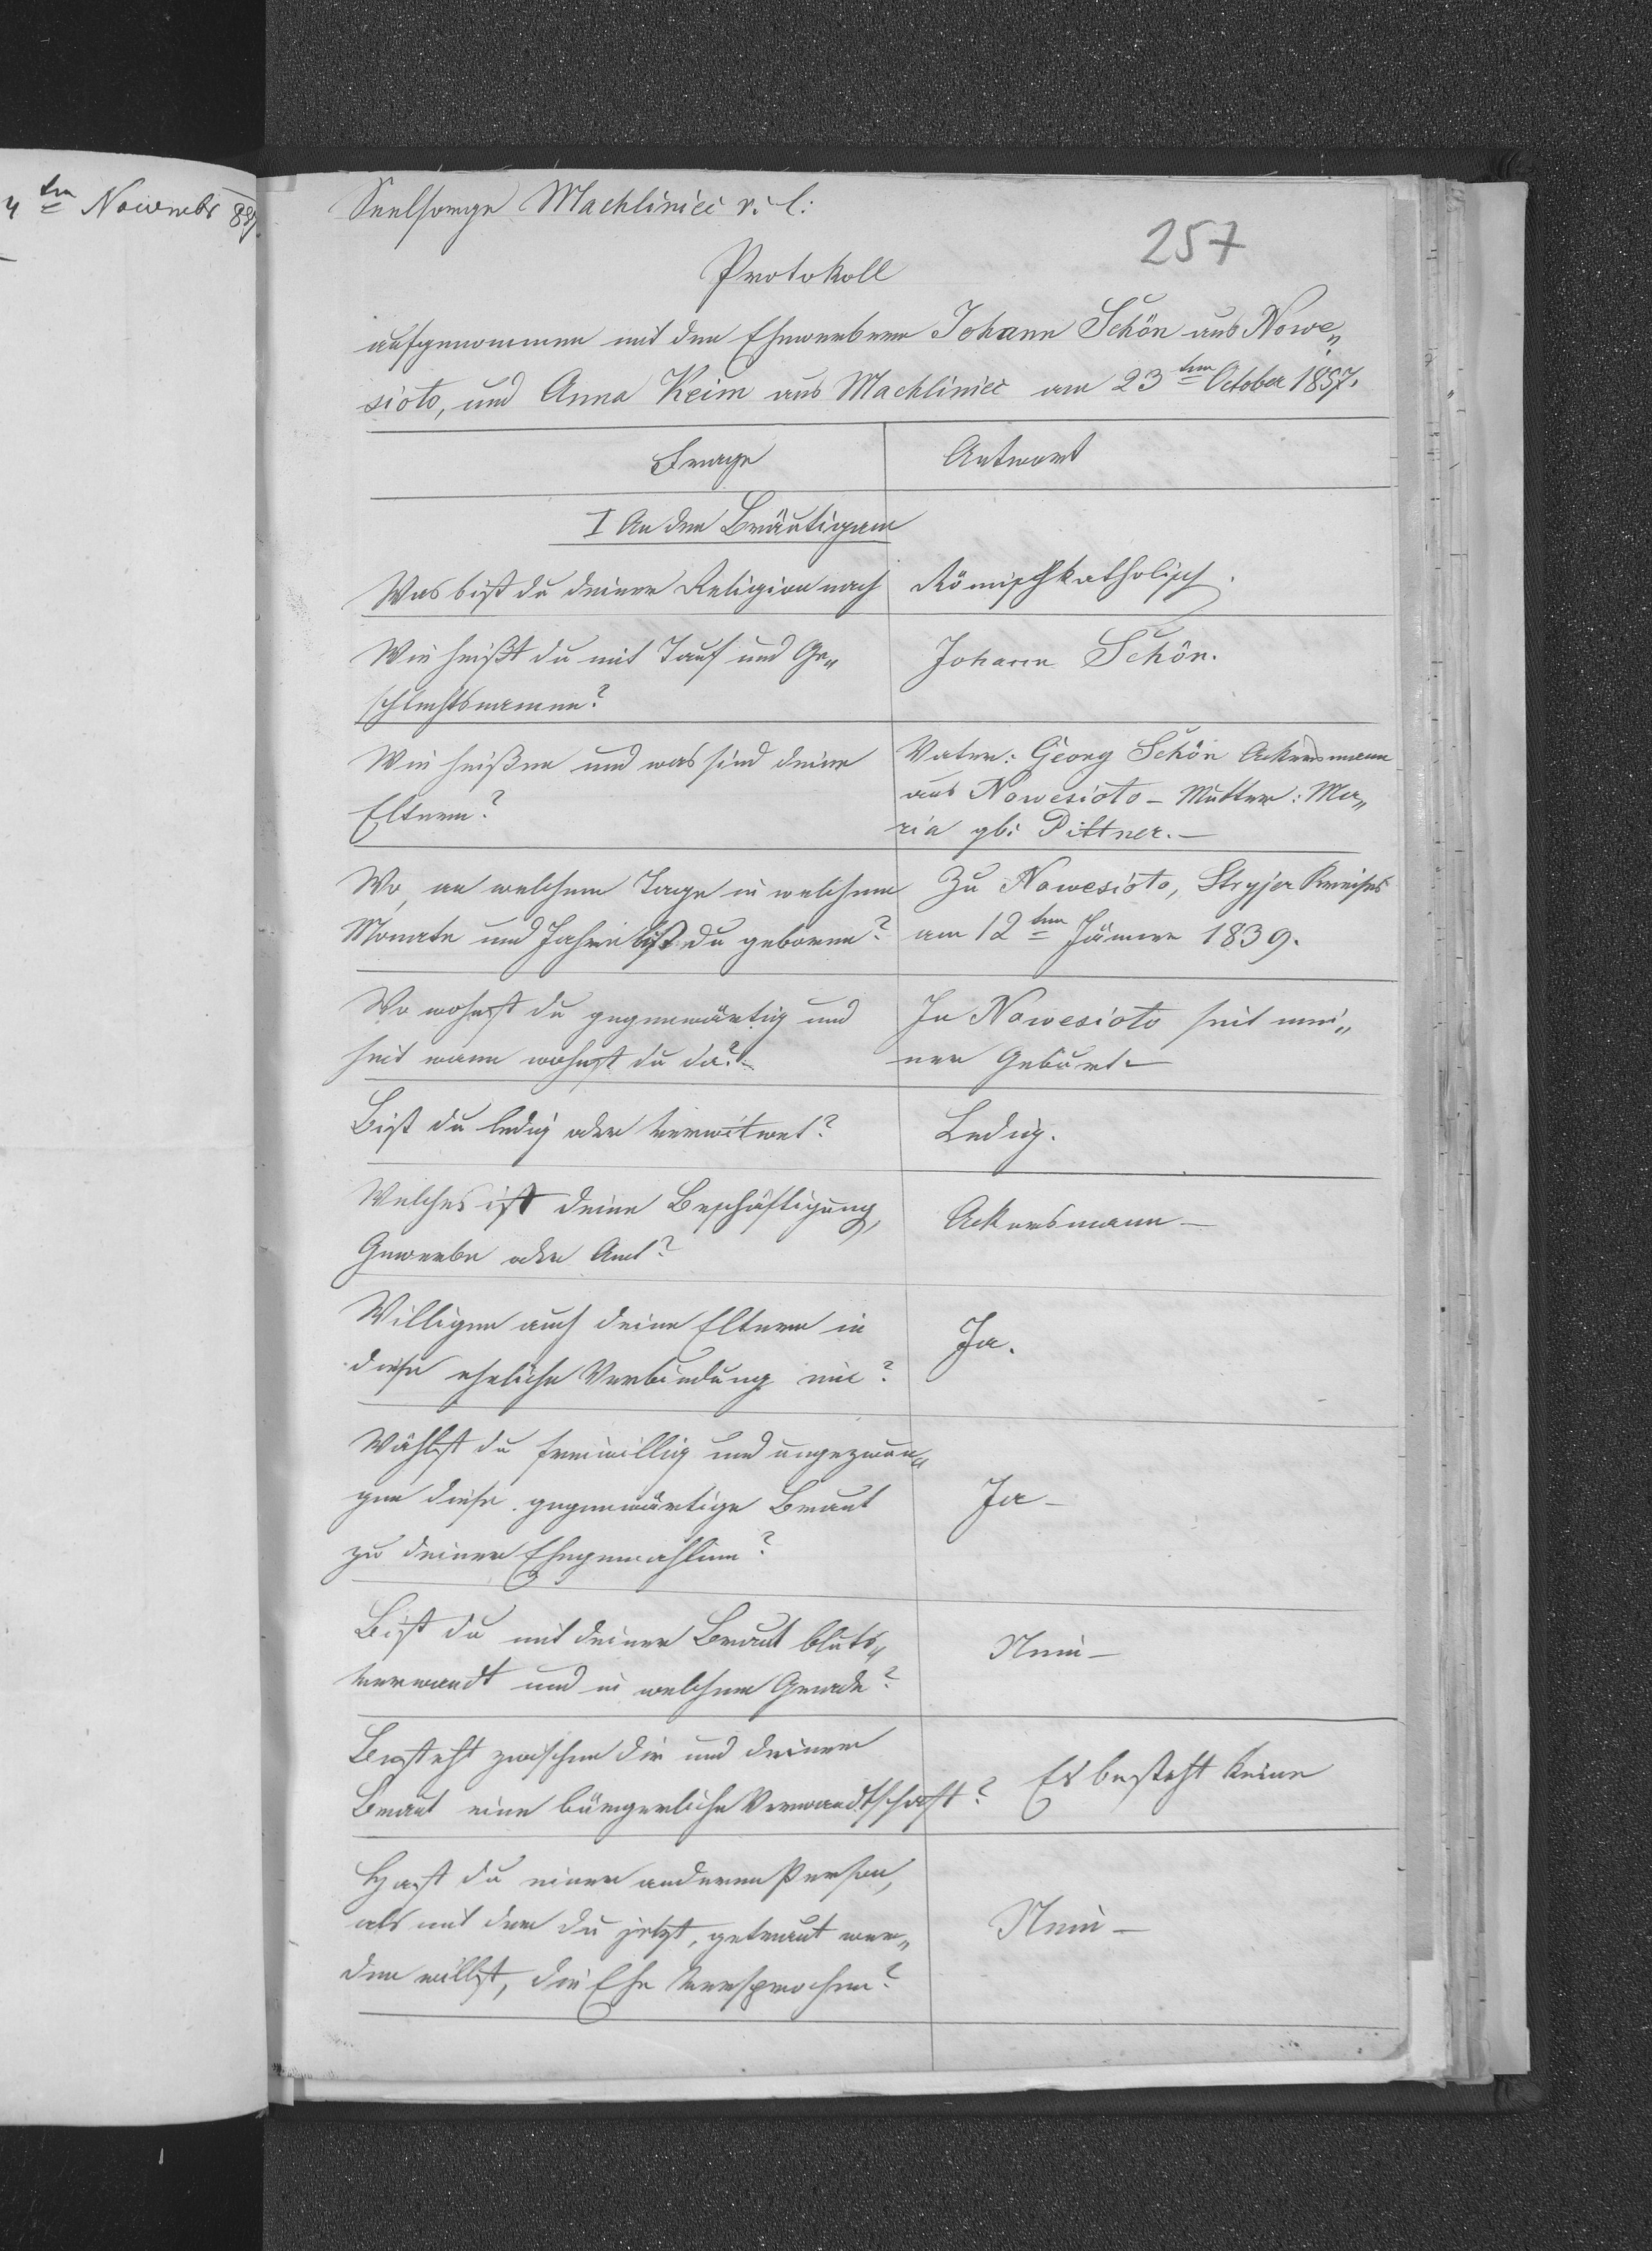 4ten Novembr 857.
Seelsorge Machliniec r. l:
257
Protokoll
aufgenommen mit den Ehewerbern Johann Schön aus Nowe„
sioto, und Anna Keim aus Machliniec am 23ten October 1857.
Frage
Antwort
I An den Bräutigam
Was bist du deiner Religion nach
Römischkatholisch.
Wie heißt du mit Tauf und Ge„
schlechtsnamen?
Johann Schön.
Wie heißen und was sind deine
Eltern?
Vater: Georg Schön Ackersmann
aus Nowesioto – Mutter: Ma„
ria gb: Pittner. –
Wo, an welchem Tage in welchem
Monate und Jahre bist du geboren?
Zu Nowesioto, Stryjer Kreises
am 12ten Jänner 1839.
Wo wohnst du gegenwärtig und
seit wann wohnst du da? –
In Nowesioto seit mei„
ner Geburt –
Bist du ledig oder verwitwet?
Ledig.
Welches ist deine Beschäftigung,
Gewerbe oder Amt?
Ackersmann –
Willigen auch deine Eltern in
diese eheliche Verbindung ein?
Ja.
Wählst du freiwillig und ungezwun„
gen diese gegenwärtige Braut
zu deiner Ehegemahlinn?
Ja –
Bist du mit deiner Braut bluts„
verwandt und in welchem Grade?
Nein –
Besteht zwischen dir und deiner
Braut eine bürgerliche Verwandtschaft?
Es besteht keine
Hast du einer anderen Person,
als mit der du jetzt, getraut wer„
den willst, die Ehe versprochen?
Nein –